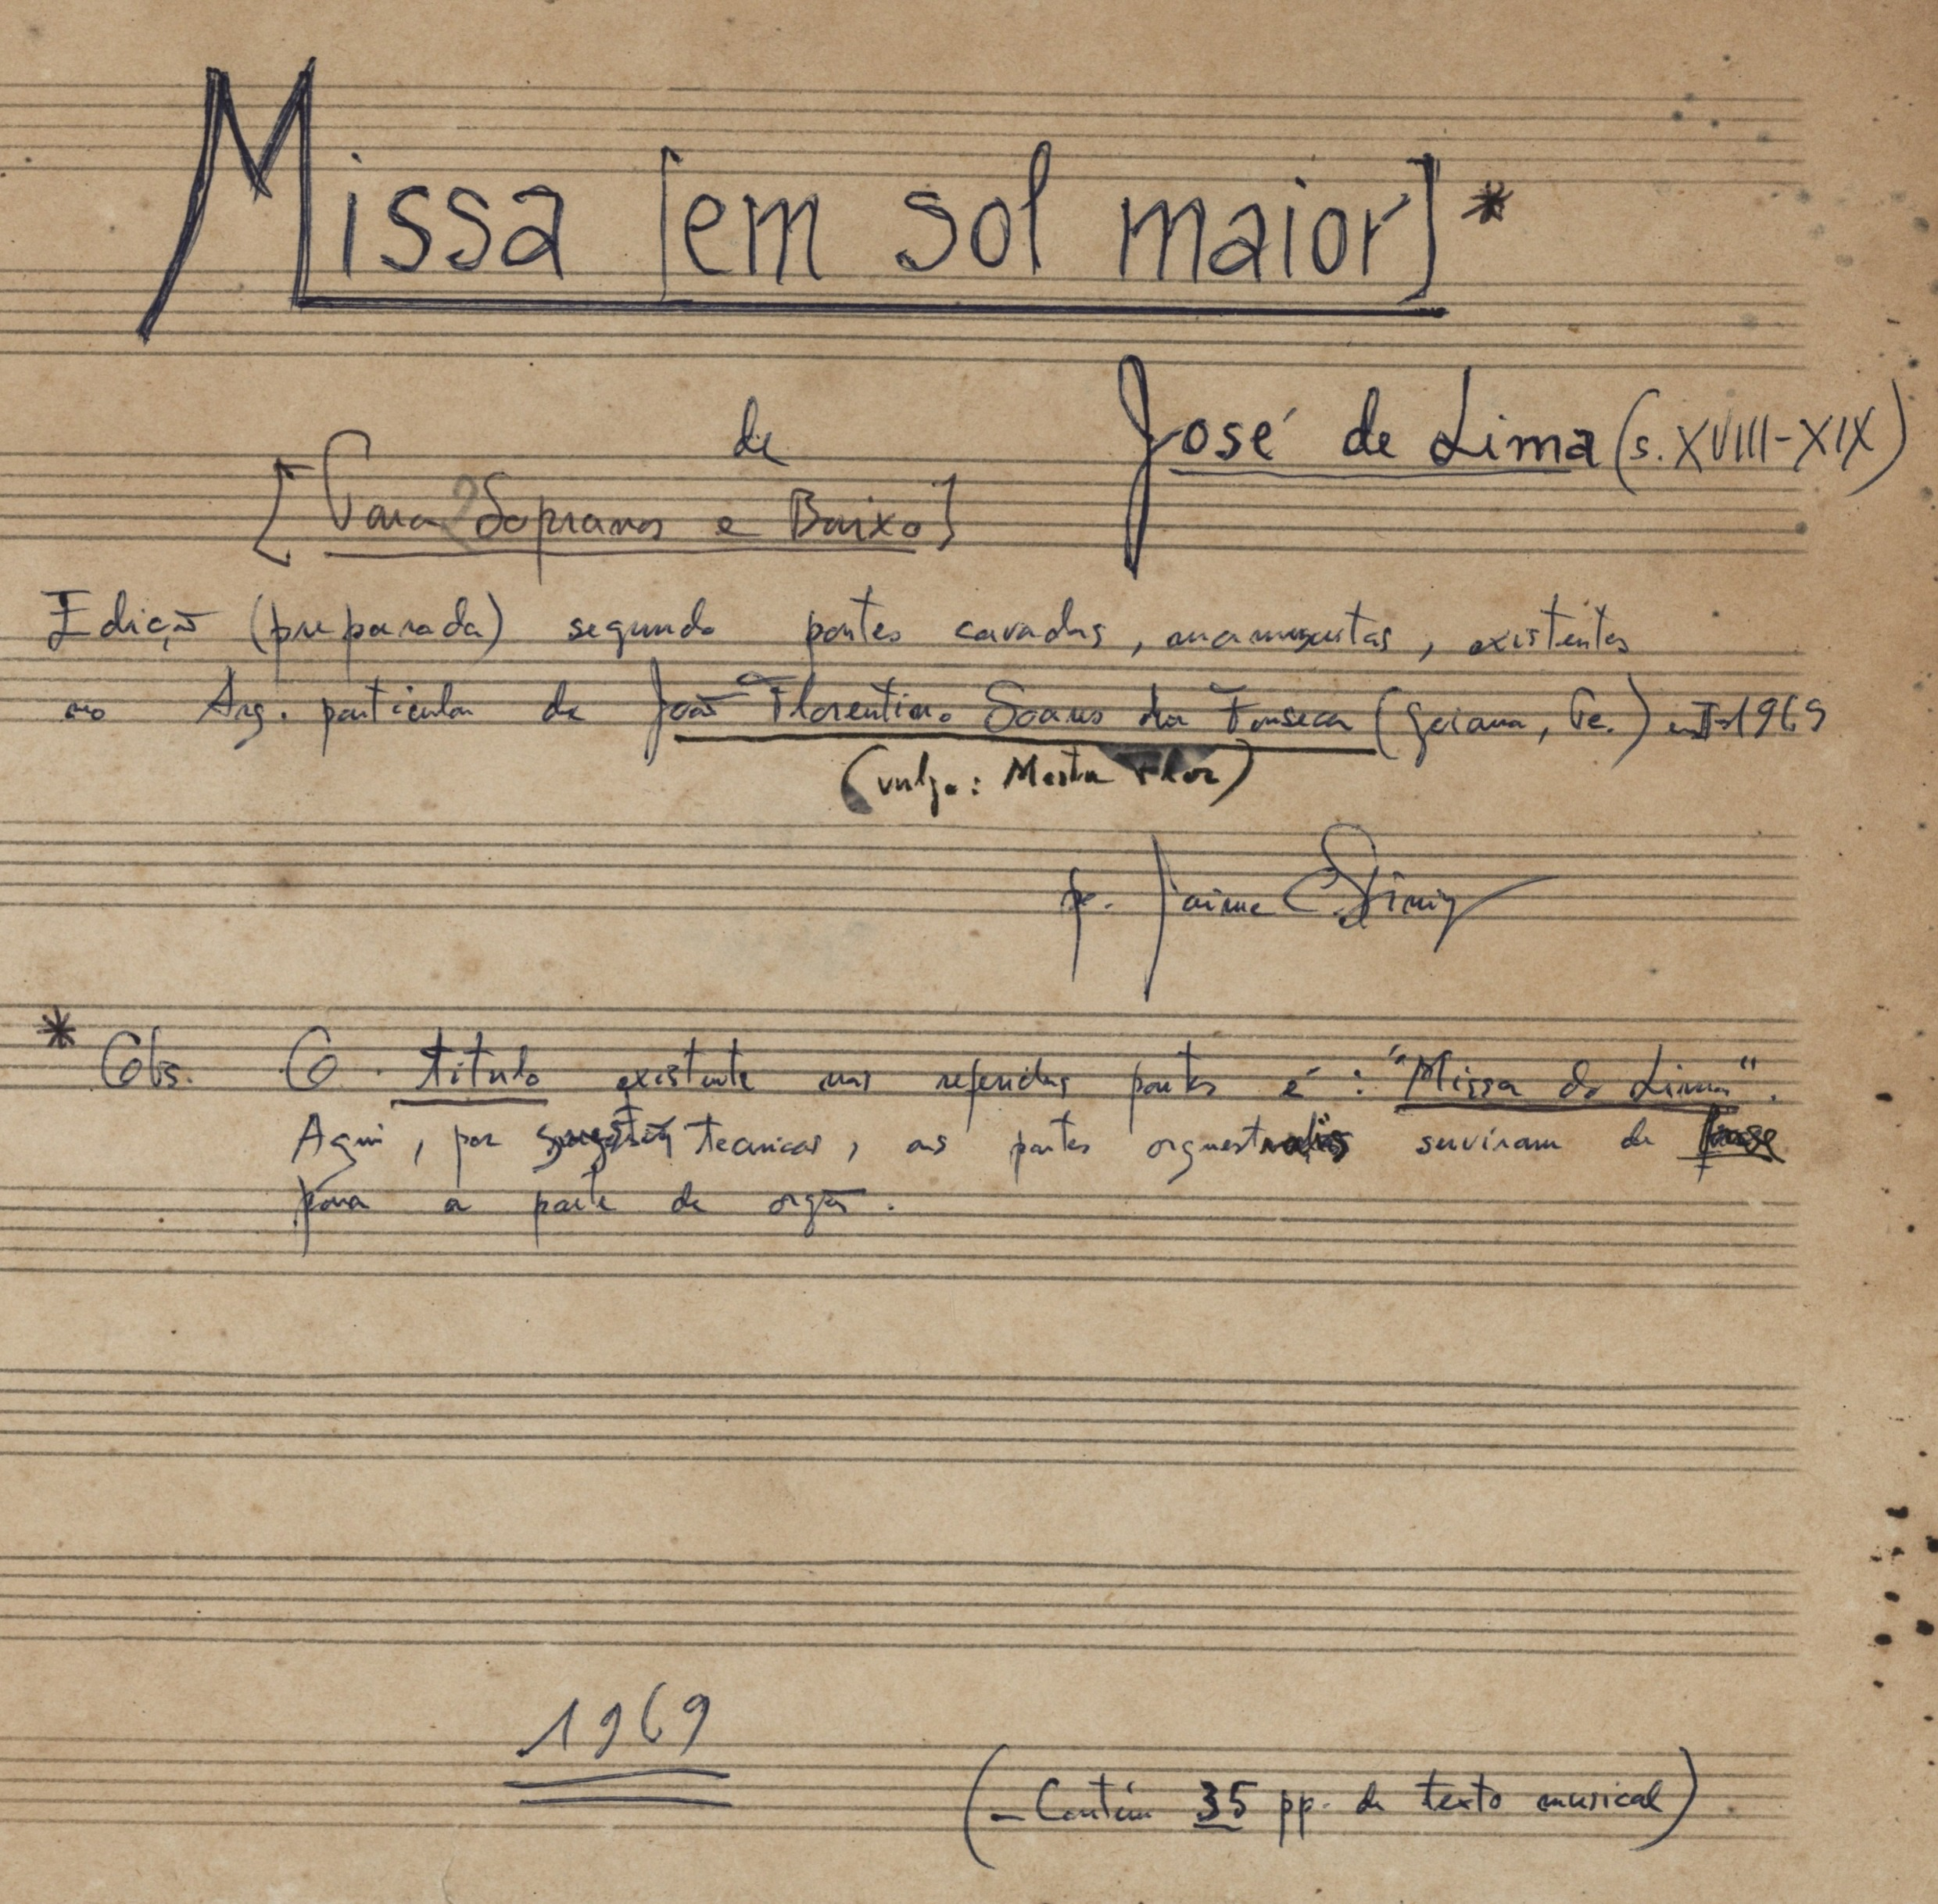 Missa [em sol maior]*
de José de Lima (s. XVIII-XIX)
[Para 2 Sopranos e Baixo]
Edição (preparada) segundo partes cavadas, manuscritas, existentes
no Arq. particular de João Florentino Soares da Fonseca (Goiana, Pe.) 1969
(vulgo: Mestre Flor)
pe. Jaime C. Diniz
* Obs. O título existente nas referidas partes é: "Missa do Lima".
Aqui, por técnicas, as partes orquestrais serviram de base
para a parte de orgão.
1969
(- Contém 35 pp. de texto musical)